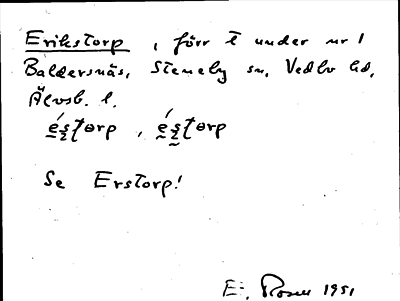 Erikstorp, förr t under nr 1
Baldersnäs, Steneby sn, Vedbo hd,
Älvsb. l.
éstorp, éstorp
Se Erstorp!
E. Rosen 1951